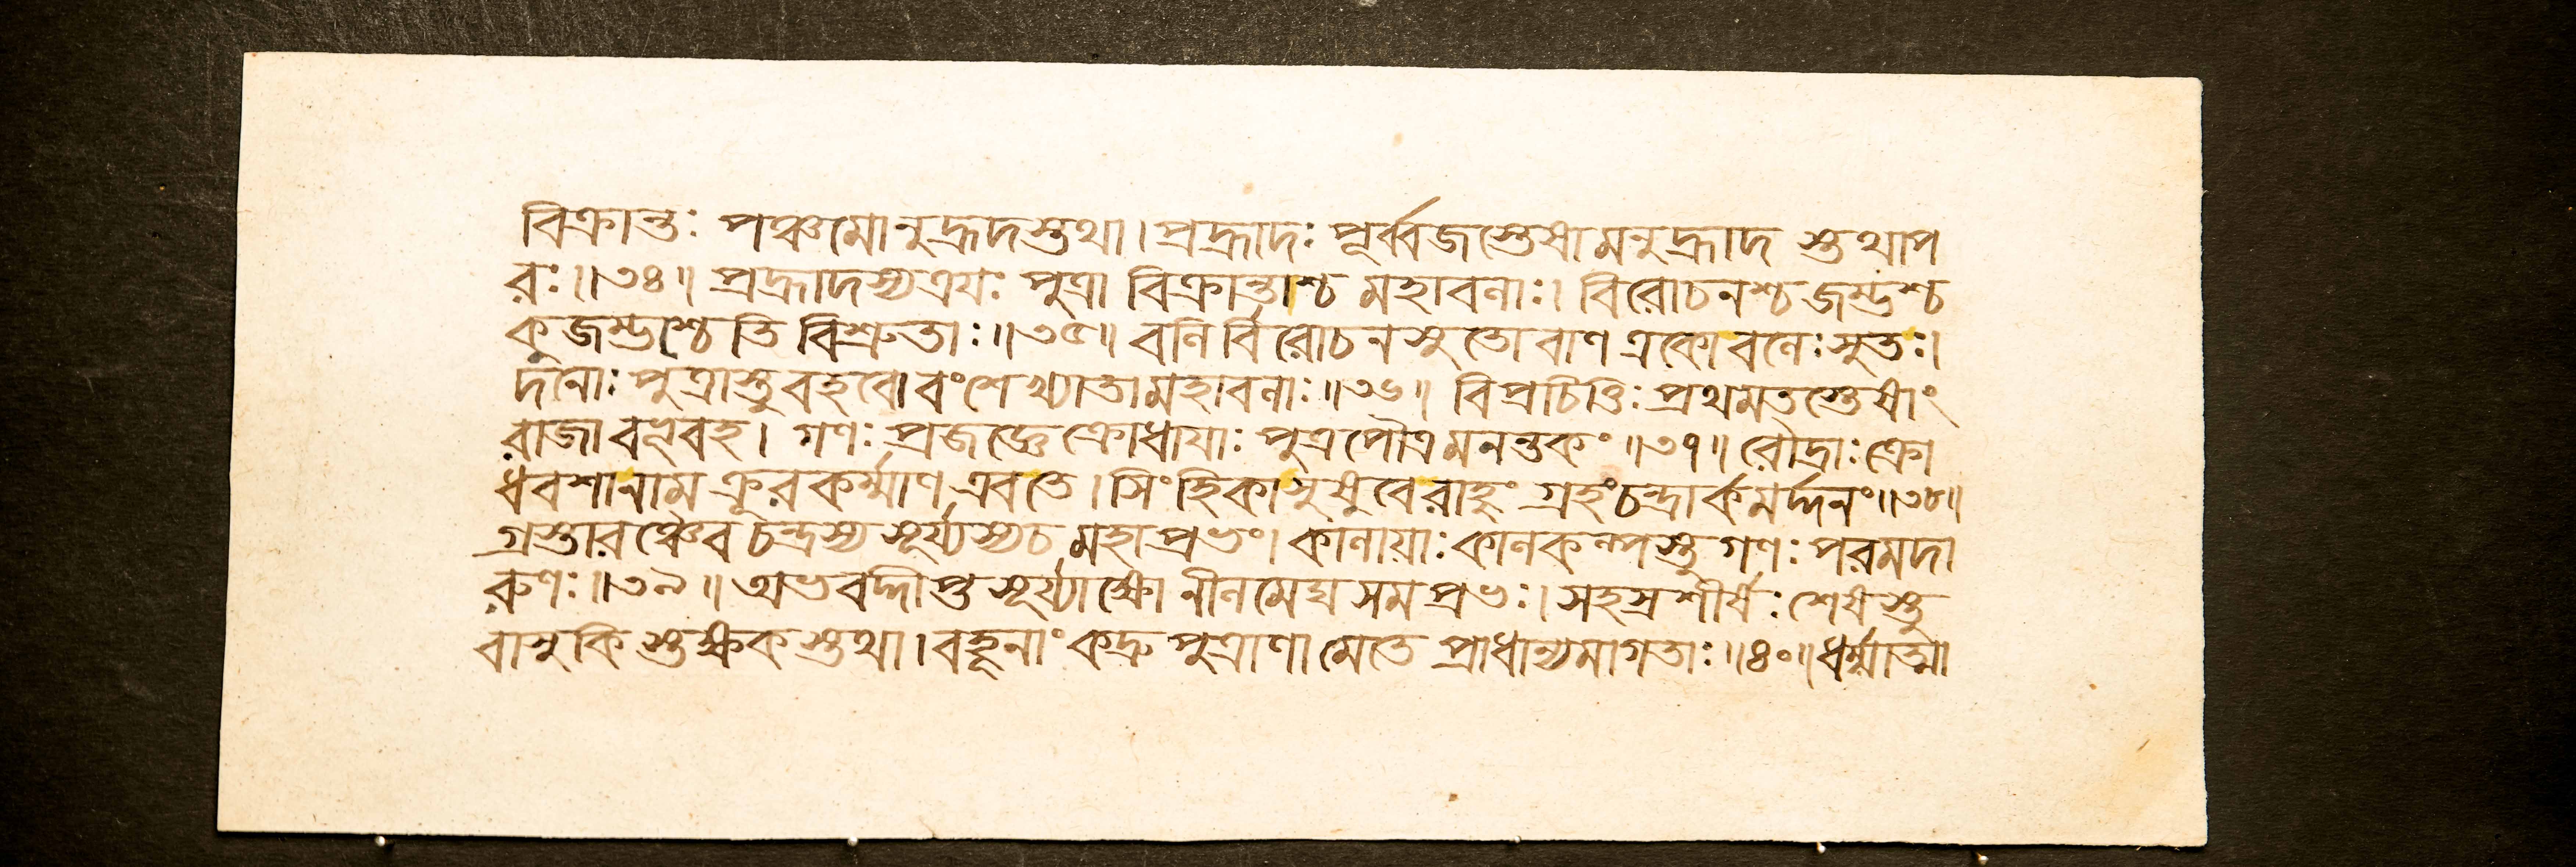 বিক্রান্তঃ পঞ্চমোনুহ্রদস্তুথা। প্রহ্রাদঃ পূর্ব্বজস্তেষামনুহ্রাদ স্তুথাপ
রঃ॥৩৪॥ প্রহ্রাদস্যত্রযঃ পুত্রা বিক্রান্তাশ্চ মহাবনাঃ। বিরোচনশ্চ জম্ভশ্চ
কুজম্ভশ্চেতি বিশ্রুতাঃ॥৩৫॥ বনির্বিরোচনসুতো বাণ একো বনেঃ সুতঃ।
দনোঃ পুত্রাস্তু বহবো বংশেখ্যাতা মহাবনাঃ॥৩৬॥ বিপ্রচিত্তিঃ প্রথমতস্তেষাং
রাজা বনূবহ। গণঃ প্রজজ্ঞে ক্রোধাযাঃ পুত্রপৌত্রমনন্তকং॥৩৭॥ রৌদ্রাঃ ক্রো
ধবশানাম ক্রূরকর্ম্মাণ এবতে। সিংহিকাসুষুবেরাহুং গ্রহংচন্দ্রার্কমর্দ্দনং॥৩৮॥
গ্রস্তারঞ্চৈব চন্দ্রস্য সূর্য্যস্যচ মহাপ্রভং। কানায়াঃ কানকল্পস্তু গণঃ পরমদা
রুণঃ॥৩৯॥ অভবদ্দীপ্ত সূর্য্যাক্ষো নীনমেঘসমপ্রভঃ। সহস্রশীর্ষঃ শেষস্তু
বাসুকি স্তুক্ষকস্তুথা। বহূনাং কদ্রুপুত্রাণামেতে প্রাধান্যমাগতাঃ॥৪০॥ ধর্ম্মাত্মা